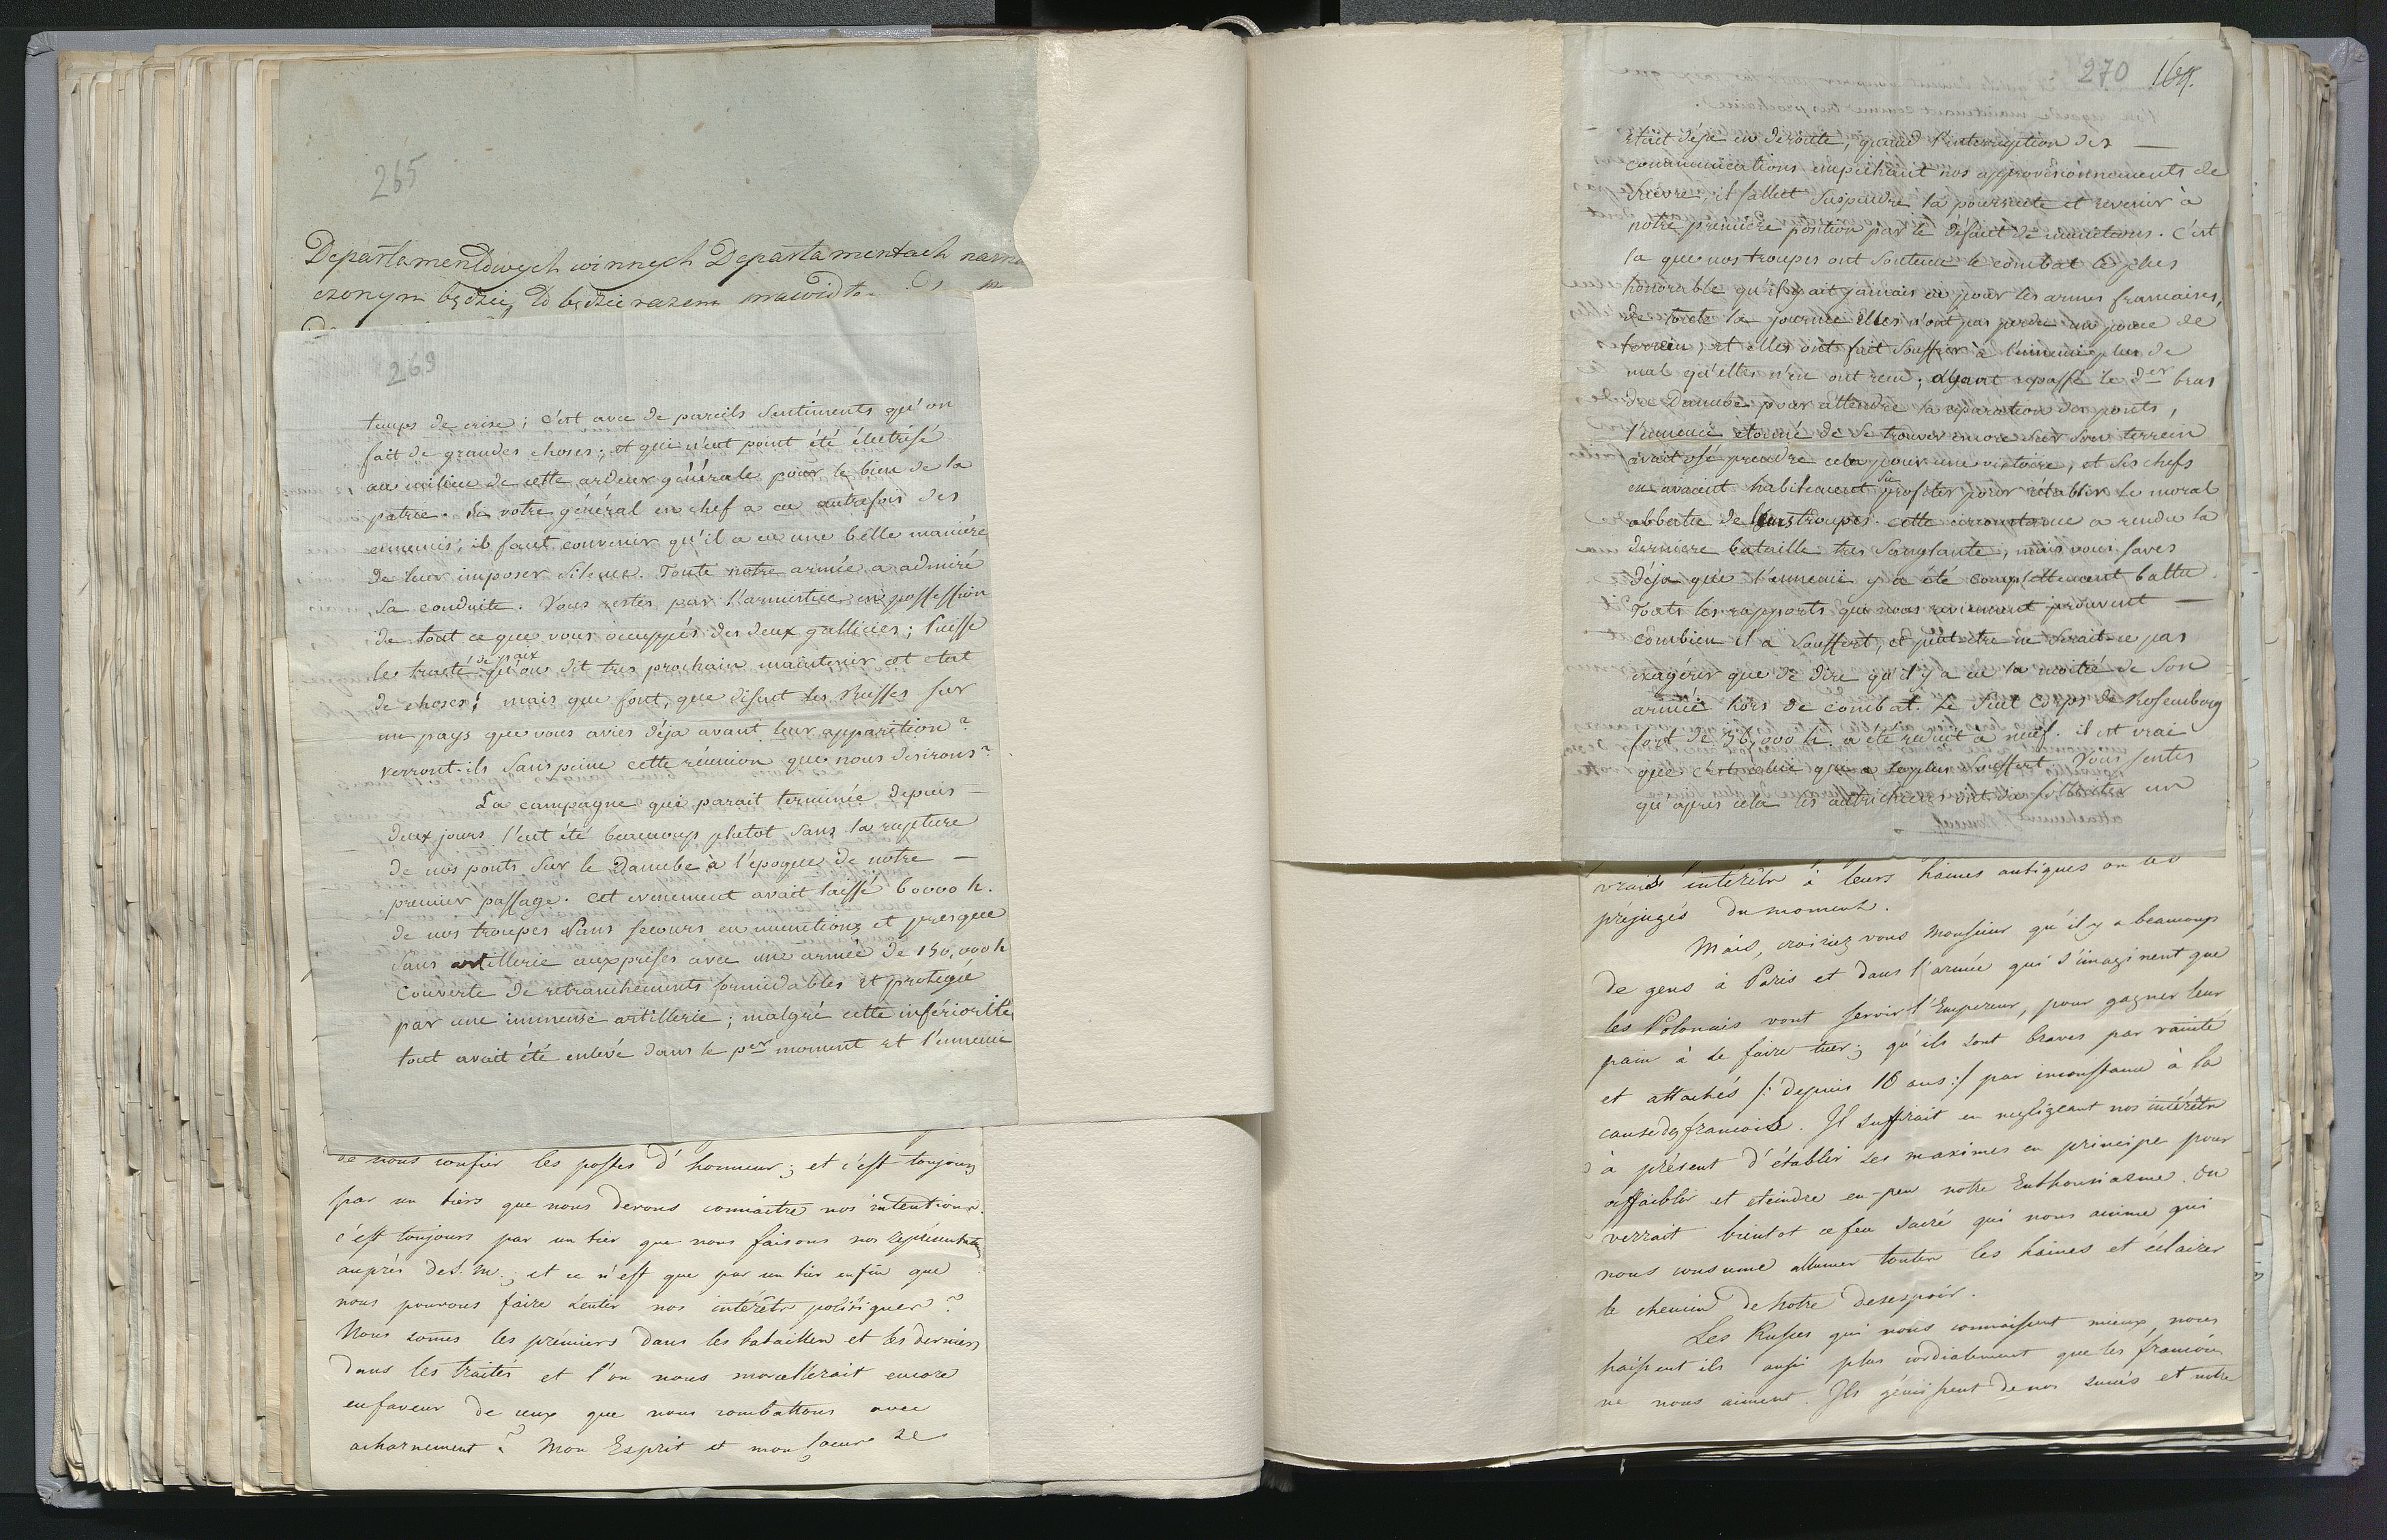 265
Departamentowych winnych Departamentach nazna
czonym będzie, to będzie razem prawidło
269
temps de crise; c'est avec de pareils sentiments qu'on
fait de grandes choses; et qui n'eut point été électrisé
au milieu de cette ardeur générale pour le bien de la
patrie. Si votre général en chef a eu autrefois des
ennemis, il faut convenir qu'il a eu une belle manière
de leur imposer silence. Toute notre armée a admiré
sa conduite. Vous restes par l'armistice en possession
de tout ce que vous occuppés des deux gallicies; Puisse
les traité de paix qu'on dit tres prochain maintenir cet etat
de choses! mais que font, que disent les Russes sur
un pays que vous avies déja avant leur apparition?
verront-ils sans peine cette réunion que nous desirons?
La campagne qui parait terminée depuis —
deux jours l'eut été beaucoup plutot sans la rupture
de nos ponts sur le Danube à l'epoque de notre —
premier passage. cet evenement avait laissé 60000 h.
de nos troupes sans secours en munitions et presque
sans artillerie aux prises avec une armée de 150,000 h
couverte de retranchements formidables et protégée
par une immense artillerie; malgré cette infériorité
tout avait été enlevé dans le per moment et l'ennemi
de nous confier les postes d'honneur; et c'est toujours
par un tiers que nous devons connaitre nos intentions.
c'est toujours par un tier que nous faisons nos représentat
auprès de S. M.; et ce n'est que par un tier enfin que
nous pouvons faire sentir nos intérêts politiques?
Nous somes les prémiers dans les batailles et les derniers
dans les traités et l'on nous morcellerait encore
en faveur de ceux que nous combattons avec
acharnement? Mon Esprit et mon coeur se
270 164.
etait déja en déroute, quand l'interruption des —
communications empéchant nos approvisionnements de
suivre, il fallut suspendre la poursuite et revenir à
notre première position par le défaut de munitions. C'est
la que nos troupes ont soutenu le combat le plus
honorable qu'il y ait jamais eu pour les armes francaises,
de toute la journée elles n'ont pas perdu un pouce de
terrein, et elles ont fait souffrir à l'ennemi plus de
mal qu'elles n'en ont recu; ayant repassé le der bras
du Danube pour attendre la réparation des ponts,
l'ennemi etonné de se trouver encore sur son terrein
avait osé prendre cela pour une victoire, et ses chefs
en avaient habilement su profiter pour rétablir le moral
abbattu de leurs troupes. cette circonstance a rendu la
derniere bataille tres sanglante, mais vous saves
déja que l'ennemi y a été complettement battu.
Touts les rapports qui nous reviennent prouvent —
combien il a souffert, et peut-etre ne serait-ce pas
exagérer que de dire qu'il y a eu la moitié de son
armée hors de combat. Le seul Corps de Rosemberg
fort de 36,000 h a été reduit a neuf. il est vrai
que c'est celui qui a le plus souffert. Vous sentes
qu'apres cela les autrichiens ont du solliciter un
vraies intérêts à leurs haines antiques ou les
préjugés du moment.
Mais, croiriez vous Monsieur qu'il y a beaucoup
de gens à Paris et dans l'armée qui s'imaginent que
les Polonais vont servir l'Empereur, pour gagner leur
pain à se faire tuer; qu'ils sont braves par vanité
et attachés /: depuis 16 ans :/ par inconstance à la
cause des francois. Il suffirait en negligeant nos intérêts
à présent d'établir ses maximes en principe pour
affaiblir et eteindre en-peu notre Enthousiasme. On
verrait bientot ce feu sacré qui nous anime qui
nous consume allumer toutes les haines et éclairer
le chemin de notre desespoir.
Les Russes qui nous connaissent mieux, nous
haissent ils aussi plus cordialement que les francois
ne nous aiment. Ils gémissent de nos succés et notre